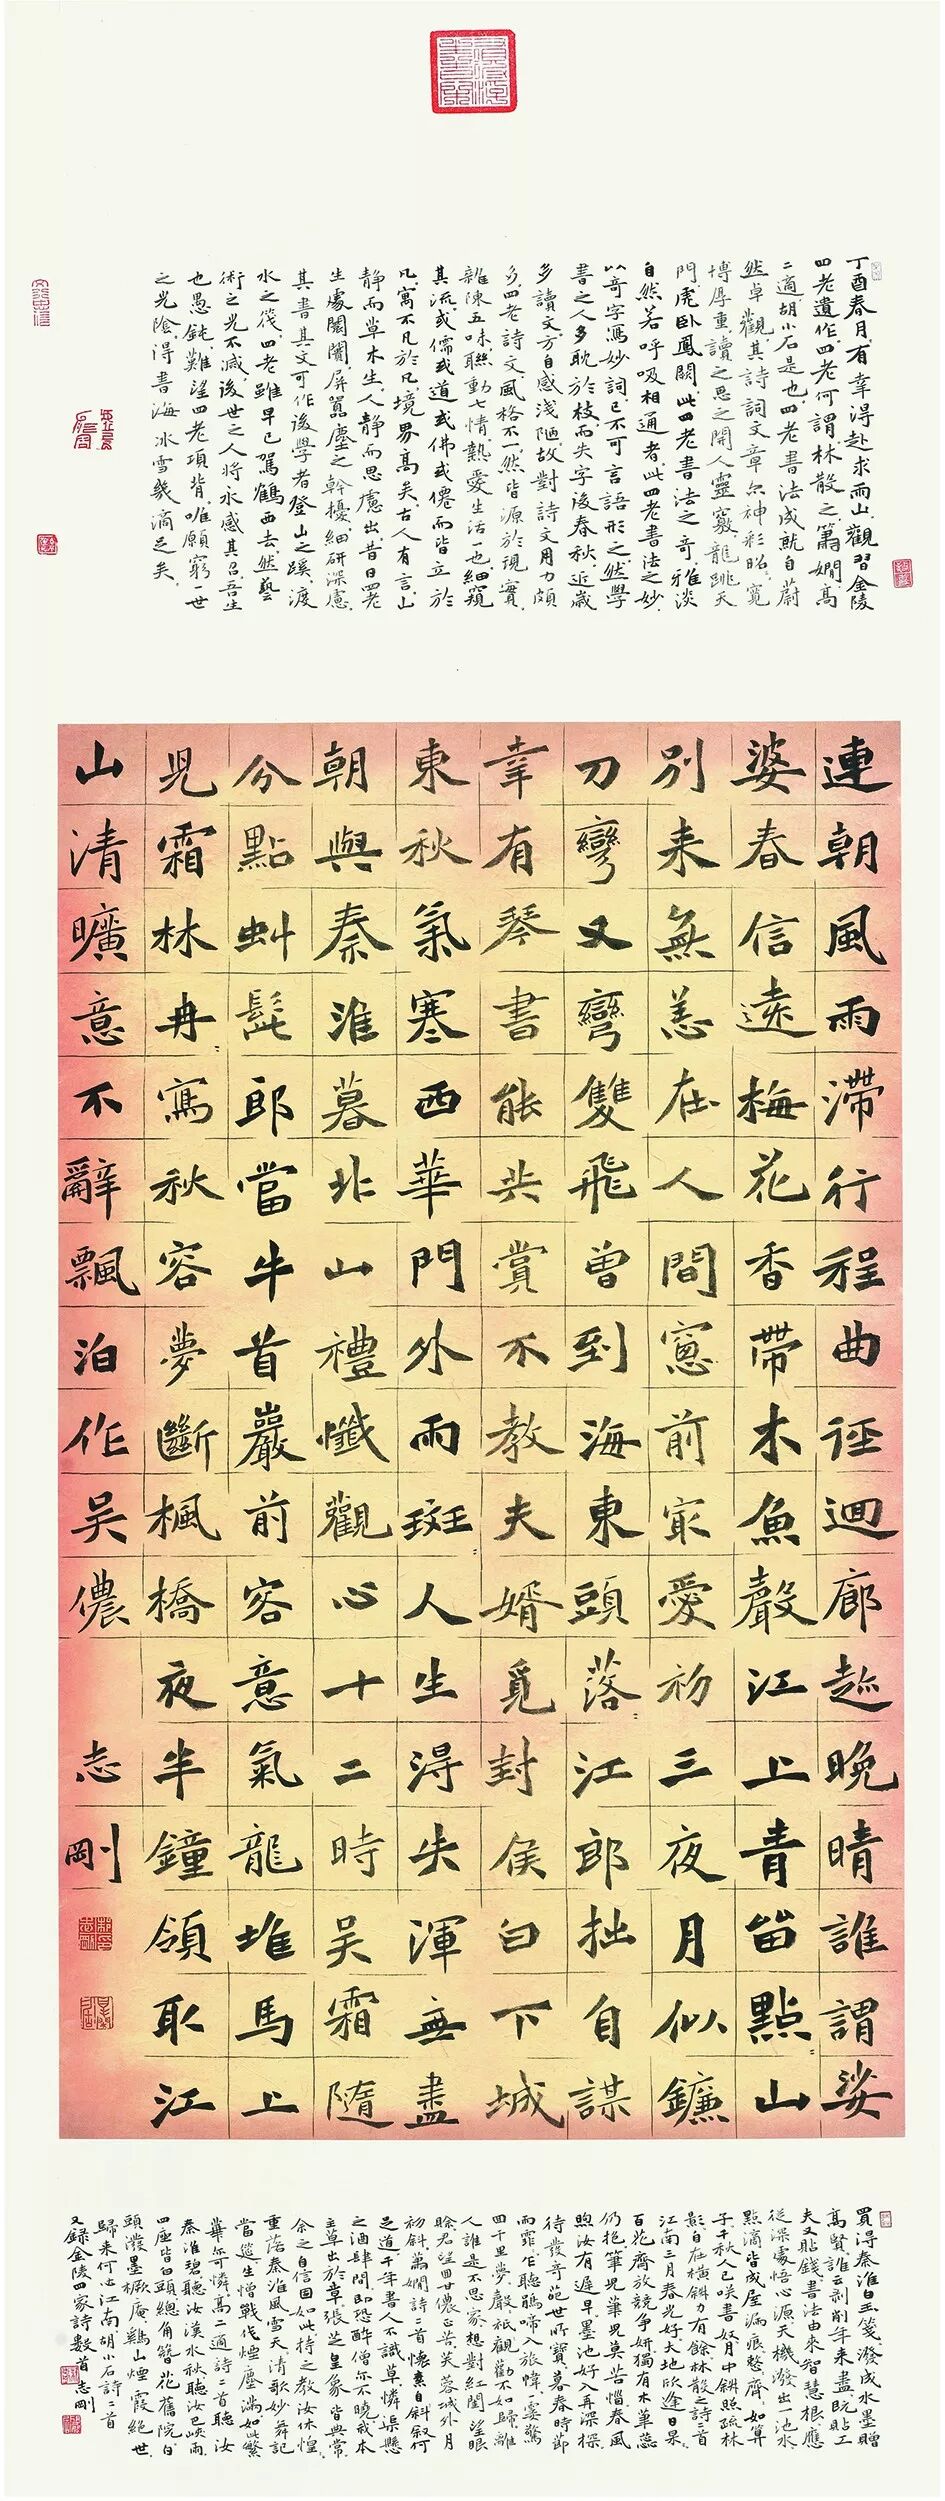 丁酉春月有幸得赴求雨山觀習金陵
四老遺作四老何謂林散之蕭嫻高
二適胡小石是也四老書法成就自蔚
然卓觀其詩詞文章尔神彩昭寬
博厚重讀之思之開人靈竅龍跳天
門虎卧鳳闕此四老書法之奇雅淡
自然若呼吸相通者此四老書法之妙
以奇字馮妙詞已不可言語形之然學
書之人多耽於技而失字後春秋近歲
多讀文方自感淺陋故對詩文用力頗
多四老詩文風格不一然皆源於現實
雜陳五味聯動七情熱愛生活一也細窺
其流或儒或道或佛或僊而皆立於
凡寓不凡於凡境界高矣古人有言山
靜而草木生人靜而思慮出昔日四老
生處闤闠屏囂塵之幹擾細研深慮
其書其文可作後學者登山之蹊渡
水之筏四老雖早已駕鶴西去然藝
術之光不滅後世之人將永感其召吾生
也愚鈍難望四老項背唯願窮一世
之光陰得書海冰雪幾滴足矣
連朝風雨滯行程曲徑迴廊趁晚晴誰謂娑
婆春信遠梅花香帶木魚聲江上青畄點山
別来無恙在人間窗前最愛初三夜月似鐮
刀彎又彎雙飛曾到海東頭落江郎拙自謀
幸有琴書能共賞不教夫婿覓封侯白下城
東秋氣寒西華門外雨斑人生得失渾無盡
朝與秦淮暮北山禮懺觀心十二時吳霜隨
分點蚪髭郎當牛首巖前客意氣龍堆馬上
見霜林冉寫秋容夢斷楓橋夜半鐘領取江
山清曠意不辭飄泊作吳儂
志剛
買得秦淮白玉箋潑成水墨贈
高賢誰云剥削年来盡既貼工
夫又貼錢書法由来智慧根應
從深處悟心源天機潑出一池水
點滴皆成屋漏痕整齊如算
子千秋人已咲書奴月中斜照疏林
影自在橫斜力有餘林散之詩二首
江南三月春光好大地欣逢日杲
百花齊放競爭妍獨有木筆蕊
仍抱筆兒筆兒莫苦惱春風
煦汝有遲早墨池好入再深探
待發奇葩世所寶暮春時節
雨霏乍聽鵑啼入旅幃一霎驚
四千里夢聲祇觀勸不如歸離
人誰是不思家想對紅閨望眼
賒君望甘儂苦芙蓉城外月
初斜蕭嫻詩一首懷素自叙何
足道千年書人不識草憐渠懸
之酒肆間即恐醉僧亦不曉我本
主草出於章張芝皇象皆典常
余之自信固如此持之教汝休惶
重落秦淮風雪天清歌妙舞記
當筵生憎戰伐煙塵滿如此繁
華亦可憐高二適詩二首聽汝
秦淮碧聽汝漢水秋聽汝巴峽雨
四座皆白頭總角簪花舊院白
頭潑墨橛庵雞山煙霞絕世
歸来何心江南胡小石詩二首
又録金陵四家詩數首志剛